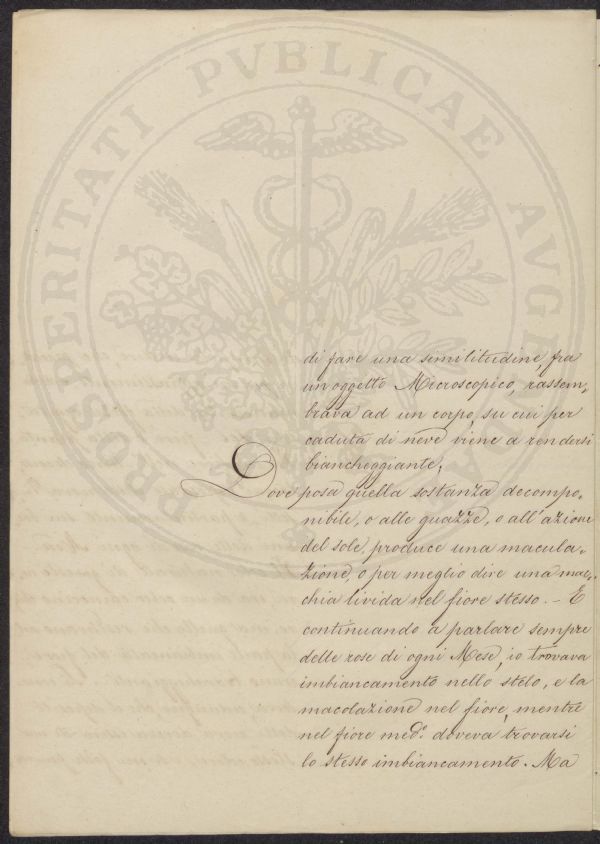 PROSPERITATI PVBLICAE AVGENDAE
di fare una similitudine, fra
un oggetto Microscopico, rassem„
brava ad un corpo, su cui per
caduta di neve viene a rendersi
biancheggiante.
Dove posa quella sostanza decompo„
nibile, o alle guazze, o all'azione
del sole, produce una macula„
zione, o per meglio dire una mac„
chia livida nel fiore stesso. — E
continuando a parlare sempre
delle rose di ogni Mese, io trovava
imbiancamento nello stelo, e la
macolazione nel fiore, mentre
nel fiore med.° doveva trovarsi
lo stesso imbiancamento. Ma